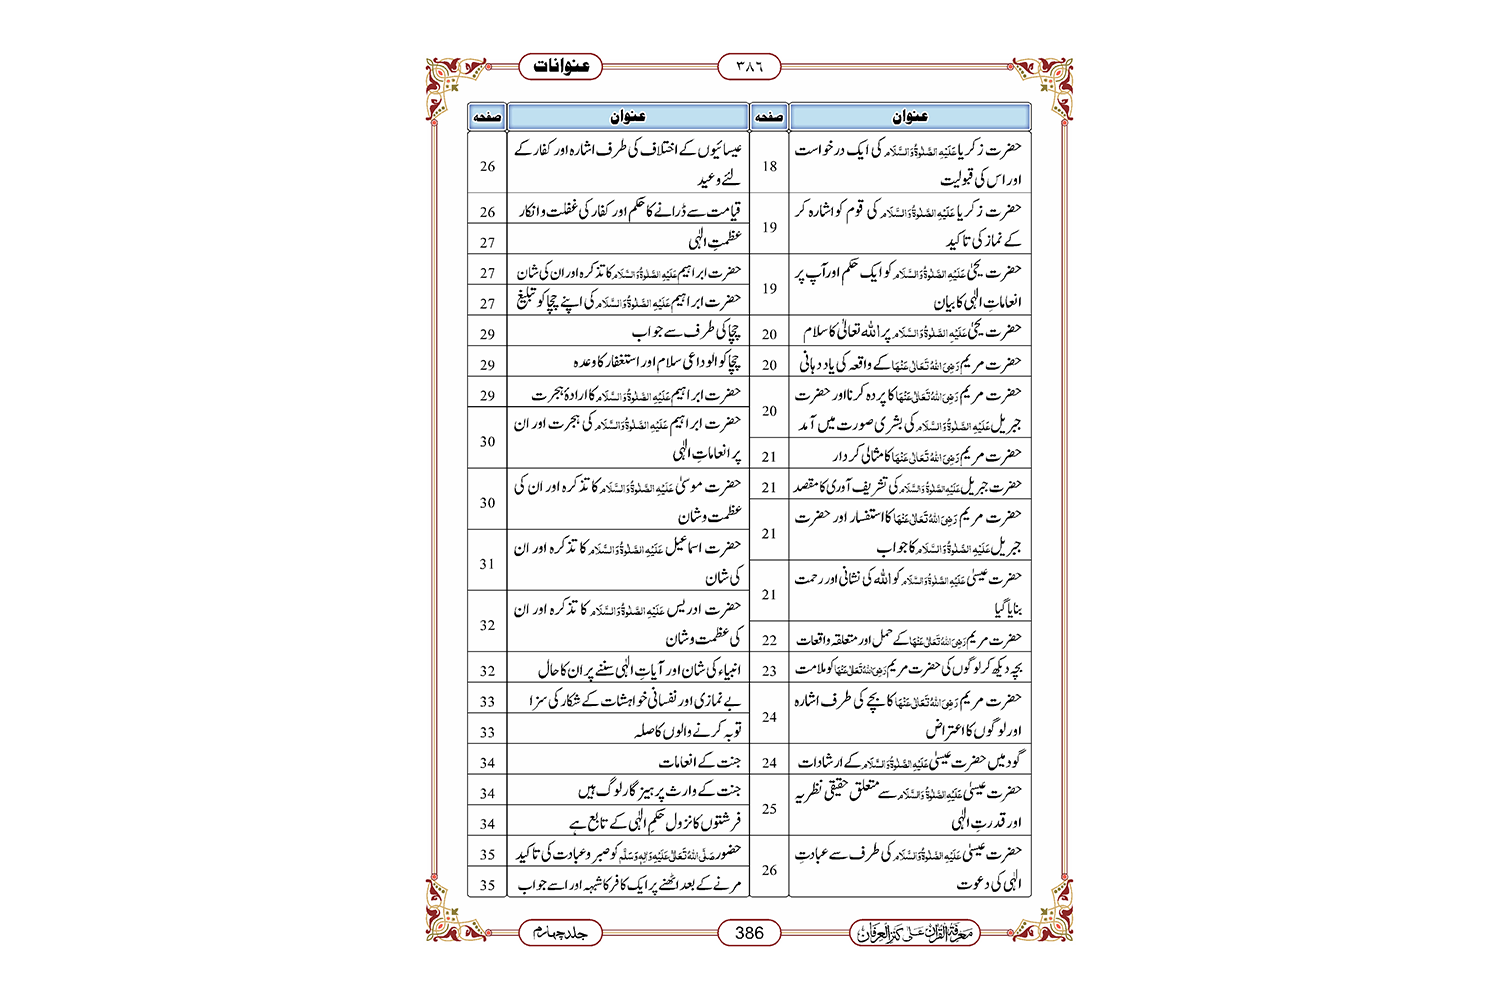 عنوانات
٣٨٦
عنوان
صفحه
عنوان
صفحه
حضرت زکریا عَلَیْهِ الصَّلٰوةُ وَالسَّلَام کی ایک درخواست
اور اس کی قبولیت
18
حضرت زکریا عَلَیْهِ الصَّلٰوةُ وَالسَّلَام کی قوم کو اشارہ کر
کے نماز کی تاکید
19
حضرت یحییٰ عَلَیْهِ الصَّلٰوةُ وَالسَّلَام کو ایک حکم اور آپ پر
انعاماتِ الٰہی کا بیان
19
حضرت یحییٰ عَلَیْهِ الصَّلٰوةُ وَالسَّلَام پر اللہ تعالیٰ کا سلام
20
حضرت مریم رَضِیَ اللهُ تَعَالٰی عَنْهَا کے واقعہ کی یاد دہانی
20
حضرت مریم رَضِیَ اللهُ تَعَالٰی عَنْهَا کا پردہ کرنا اور حضرت
جبریل عَلَیْهِ الصَّلٰوةُ وَالسَّلَام کی بشری صورت میں آمد
20
حضرت مریم رَضِیَ اللهُ تَعَالٰی عَنْهَا کا مثالی کردار
21
حضرت جبریل عَلَیْهِ الصَّلٰوةُ وَالسَّلَام کی تشریف آوری کا مقصد
21
حضرت مریم رَضِیَ اللهُ تَعَالٰی عَنْهَا کا استفسار اور حضرت
جبریل عَلَیْهِ الصَّلٰوةُ وَالسَّلَام کا جواب
21
حضرت عیسیٰ عَلَیْهِ الصَّلٰوةُ وَالسَّلَام کو اللہ کی نشانی اور رحمت
بنایا گیا
21
حضرت مریم رَضِیَ اللهُ تَعَالٰی عَنْهَا کے حمل اور متعلقہ واقعات
22
بچہ دیکھ کر لوگوں کی حضرت مریم رَضِیَ اللهُ تَعَالٰی عَنْهَا کو ملامت
23
حضرت مریم رَضِیَ اللهُ تَعَالٰی عَنْهَا کا بچے کی طرف اشارہ
اور لوگوں کا اعتراض
24
گود میں حضرت عیسیٰ عَلَیْهِ الصَّلٰوةُ وَالسَّلَام کے ارشادات
24
حضرت عیسیٰ عَلَیْهِ الصَّلٰوةُ وَالسَّلَام سے متعلق حقیقی نظریہ
اور قدرتِ الٰہی
25
حضرت عیسیٰ عَلَیْهِ الصَّلٰوةُ وَالسَّلَام کی طرف سے عبادتِ
الٰہی کی دعوت
26
عیسائیوں کے اختلاف کی طرف اشارہ اور کفار کے
لئے وعید
26
قیامت سے ڈرانے کا حکم اور کفار کی غفلت و انکار
26
عظمتِ الٰہی
27
حضرت ابراہیم عَلَیْهِ الصَّلٰوةُ وَالسَّلَام کا تذکرہ اور ان کی شان
27
حضرت ابراہیم عَلَیْهِ الصَّلٰوةُ وَالسَّلَام کی اپنے چچا کو تبلیغ
27
چچا کی طرف سے جواب
29
چچا کو الوداعی سلام اور استغفار کا وعدہ
29
حضرت ابراہیم عَلَیْهِ الصَّلٰوةُ وَالسَّلَام کا ارادۂ ہجرت
29
حضرت ابراہیم عَلَیْهِ الصَّلٰوةُ وَالسَّلَام کی ہجرت اور ان
پر انعاماتِ الٰہی
30
حضرت موسیٰ عَلَیْهِ الصَّلٰوةُ وَالسَّلَام کا تذکرہ اور ان کی
عظمت و شان
30
حضرت اسماعیل عَلَیْهِ الصَّلٰوةُ وَالسَّلَام کا تذکرہ اور ان
کی شان
31
حضرت ادریس عَلَیْهِ الصَّلٰوةُ وَالسَّلَام کا تذکرہ اور ان
کی عظمت و شان
32
انبیاء کی شان اور آیاتِ الٰہی سننے پر ان کا حال
32
بے نمازی اور نفسانی خواہشات کے شکار کی سزا
33
توبہ کرنے والوں کا صلہ
33
جنت کے انعامات
34
جنت کے وارث پرہیز گار لوگ ہیں
34
فرشتوں کا نزول حکمِ الٰہی کے تابع ہے
34
حضور صَلَّی اللهُ تَعَالٰی عَلَیْهِ وَاٰلِهٖ وَسَلَّم کو صبر و عبادت کی تاکید
35
مرنے کے بعد اٹھنے پر ایک کافر کا شبہ اور اسے جواب
35
معرفۃ القرآن علٰی کنز العرفان
386
جلد چہارم